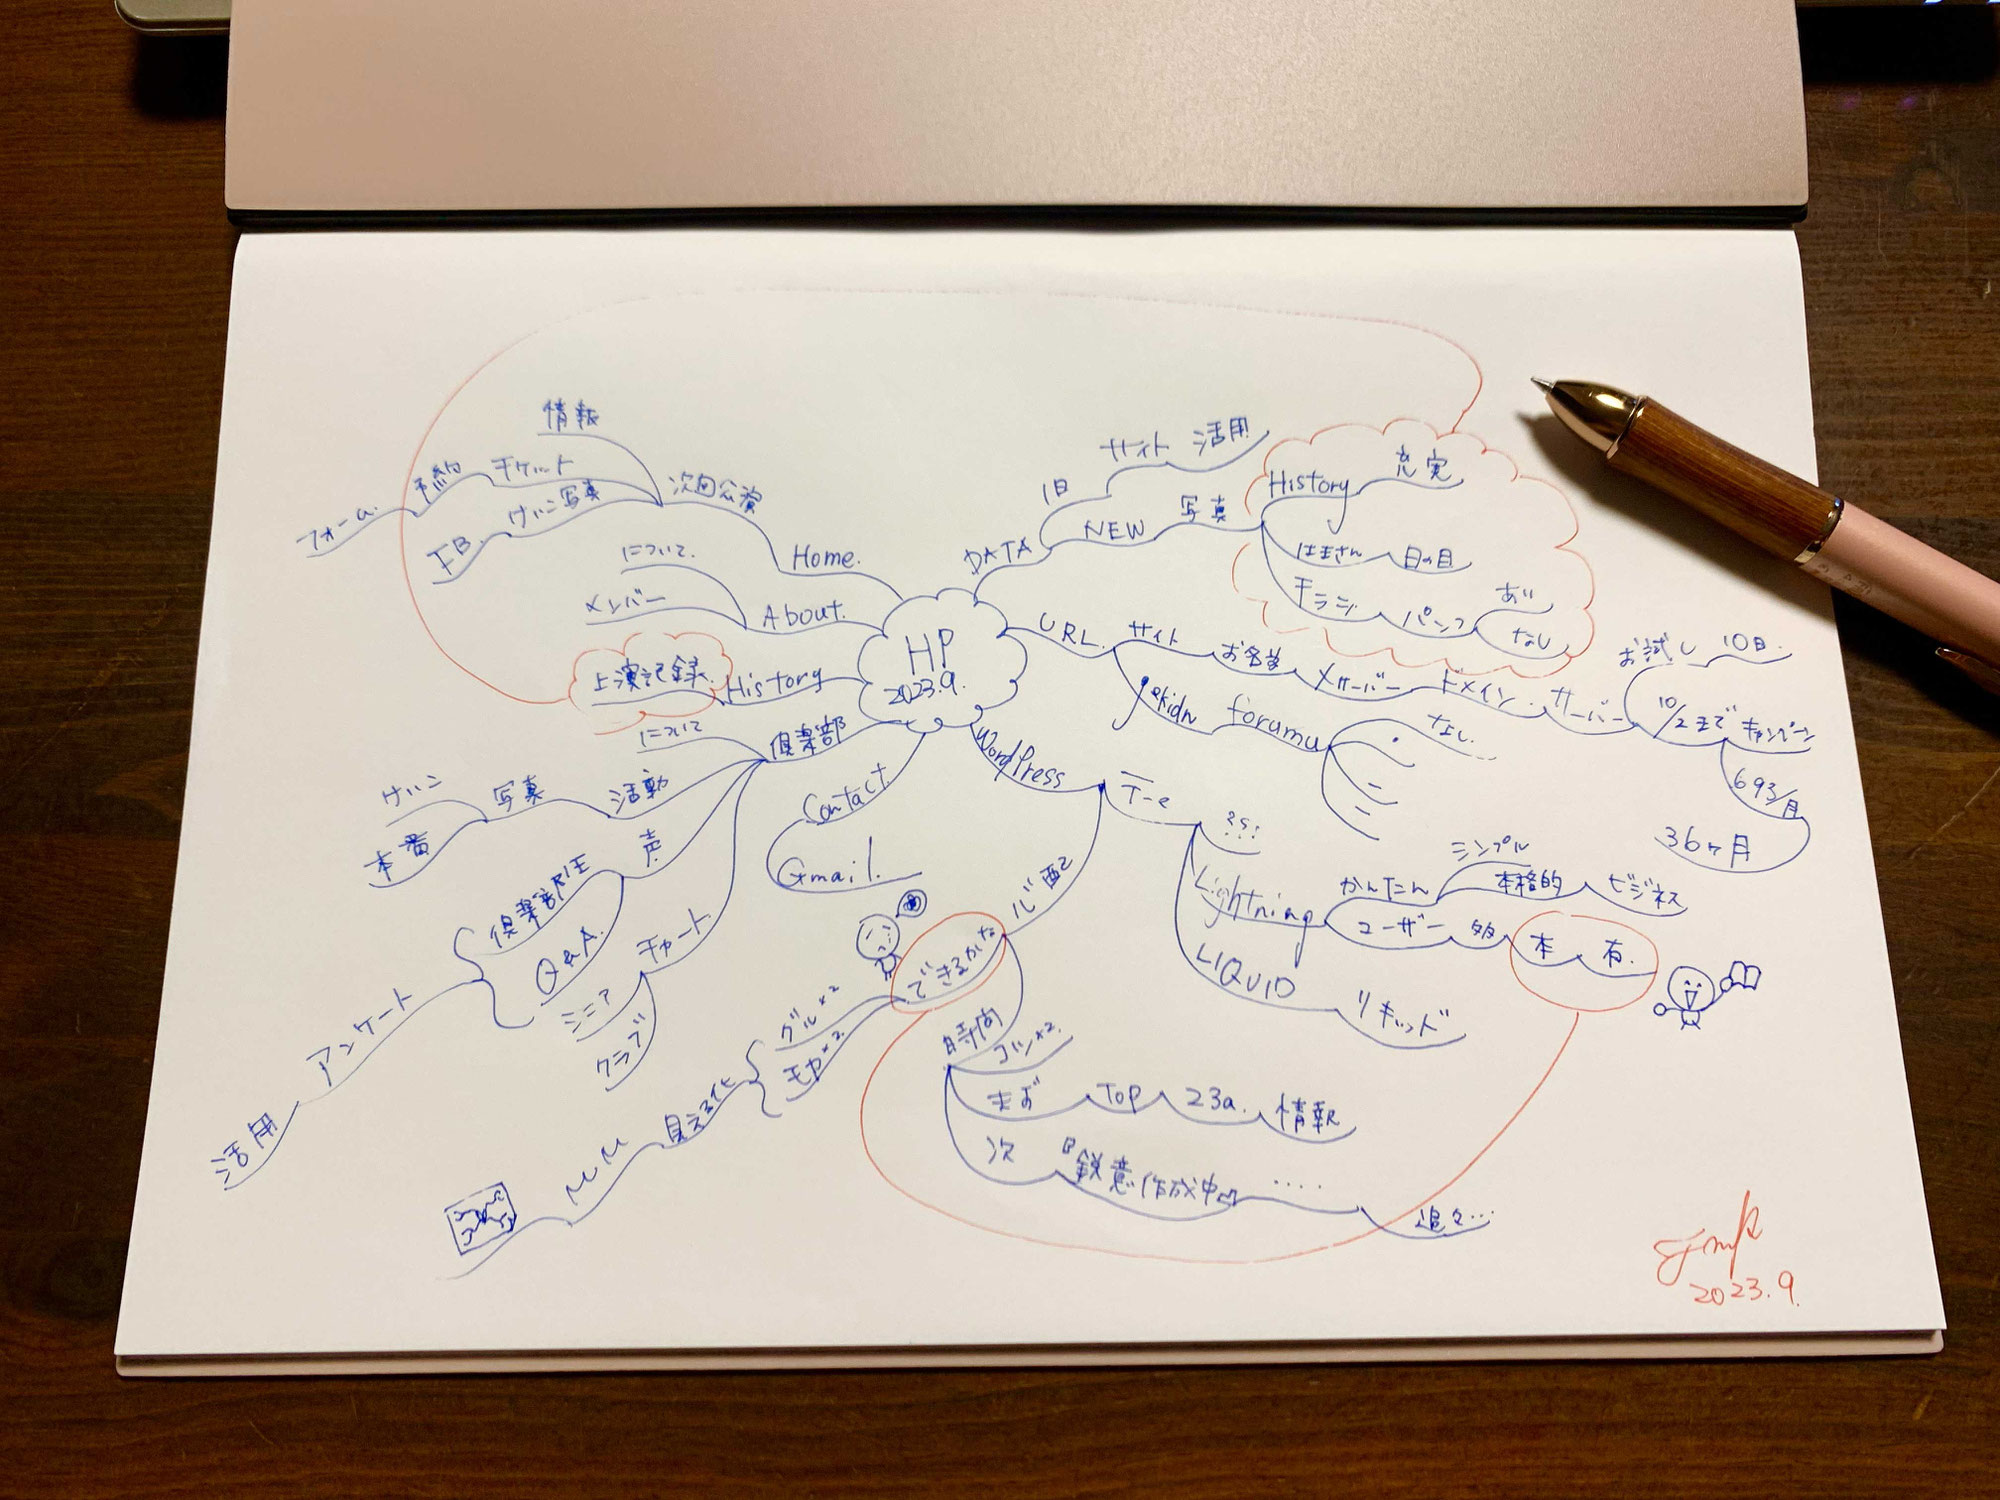 HP
2023.9.
DATA
旧
サイト 活用
NEW
写真
History
充実
はまさん
日の目
チラシ
パンフ
あり
なし
URL.
サイト
お名前
Xサーバー
ドメイン
サーバー
お試し 10日.
10/2まで キャンペーン
693/月
36ヶ月
forumu
なし.
WordPress
テーマ
???
Lightning
かんたん
シンプル
本格的
ビジネス
ユーザー
多
本
有.
LIQUID
リキッド
心配
できるかな
グル×2
モヤ×2
見える化
MM
時間
コツ×2
まず
TOP
23a.
情報
次
『鋭意作成中』
.....
追々...
Contact
Gmail.
倶楽部
について
活動
写真
けいこ
本番
声
Q&A.
アンケート
活用
チャート
シニア
クラブ
History
上演記録.
About.
について.
メンバー
Home.
次回公演
情報
チケット
予約
フォーム.
けいこ写真
FB.
2023.9.